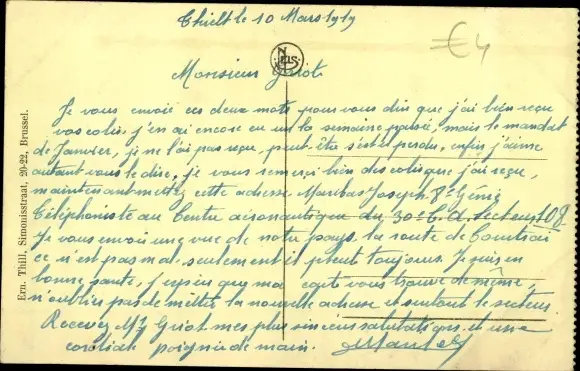 Thielt le 10 Mars 1919
€4
Monsieur Griot
Je vous envoie ces deux mots pour vous dire que j'ai bien reçu
vos colis, j'en ai encore eu un la semaine passée, mais le mandat
de Janvier, je ne l'ai pas reçu, peut-être s'est-il perdu, enfin j'aime
autant vous le dire, je vous remerci bien des colis que j'ai reçu,
maintenant mettez cette adresse Joseph 8e Génie
Téléphoniste au Centre aéronautique du 30e C.A. secteur 108
Je vous envoie une vue de notre pays la route de Courtrai
ce n'est pas mal, seulement il pleut toujours. Je suis en
bonne santé, j'espère que ma vous trouve de même,
n'oubliez pas de mettre la nouvelle adresse et surtout le secteur.
Recevez Mr Griot mes plus sincères salutations et une
cordiale poignée de main.
Ern. Thill, Simonisstraat, 20-22, Brussel.